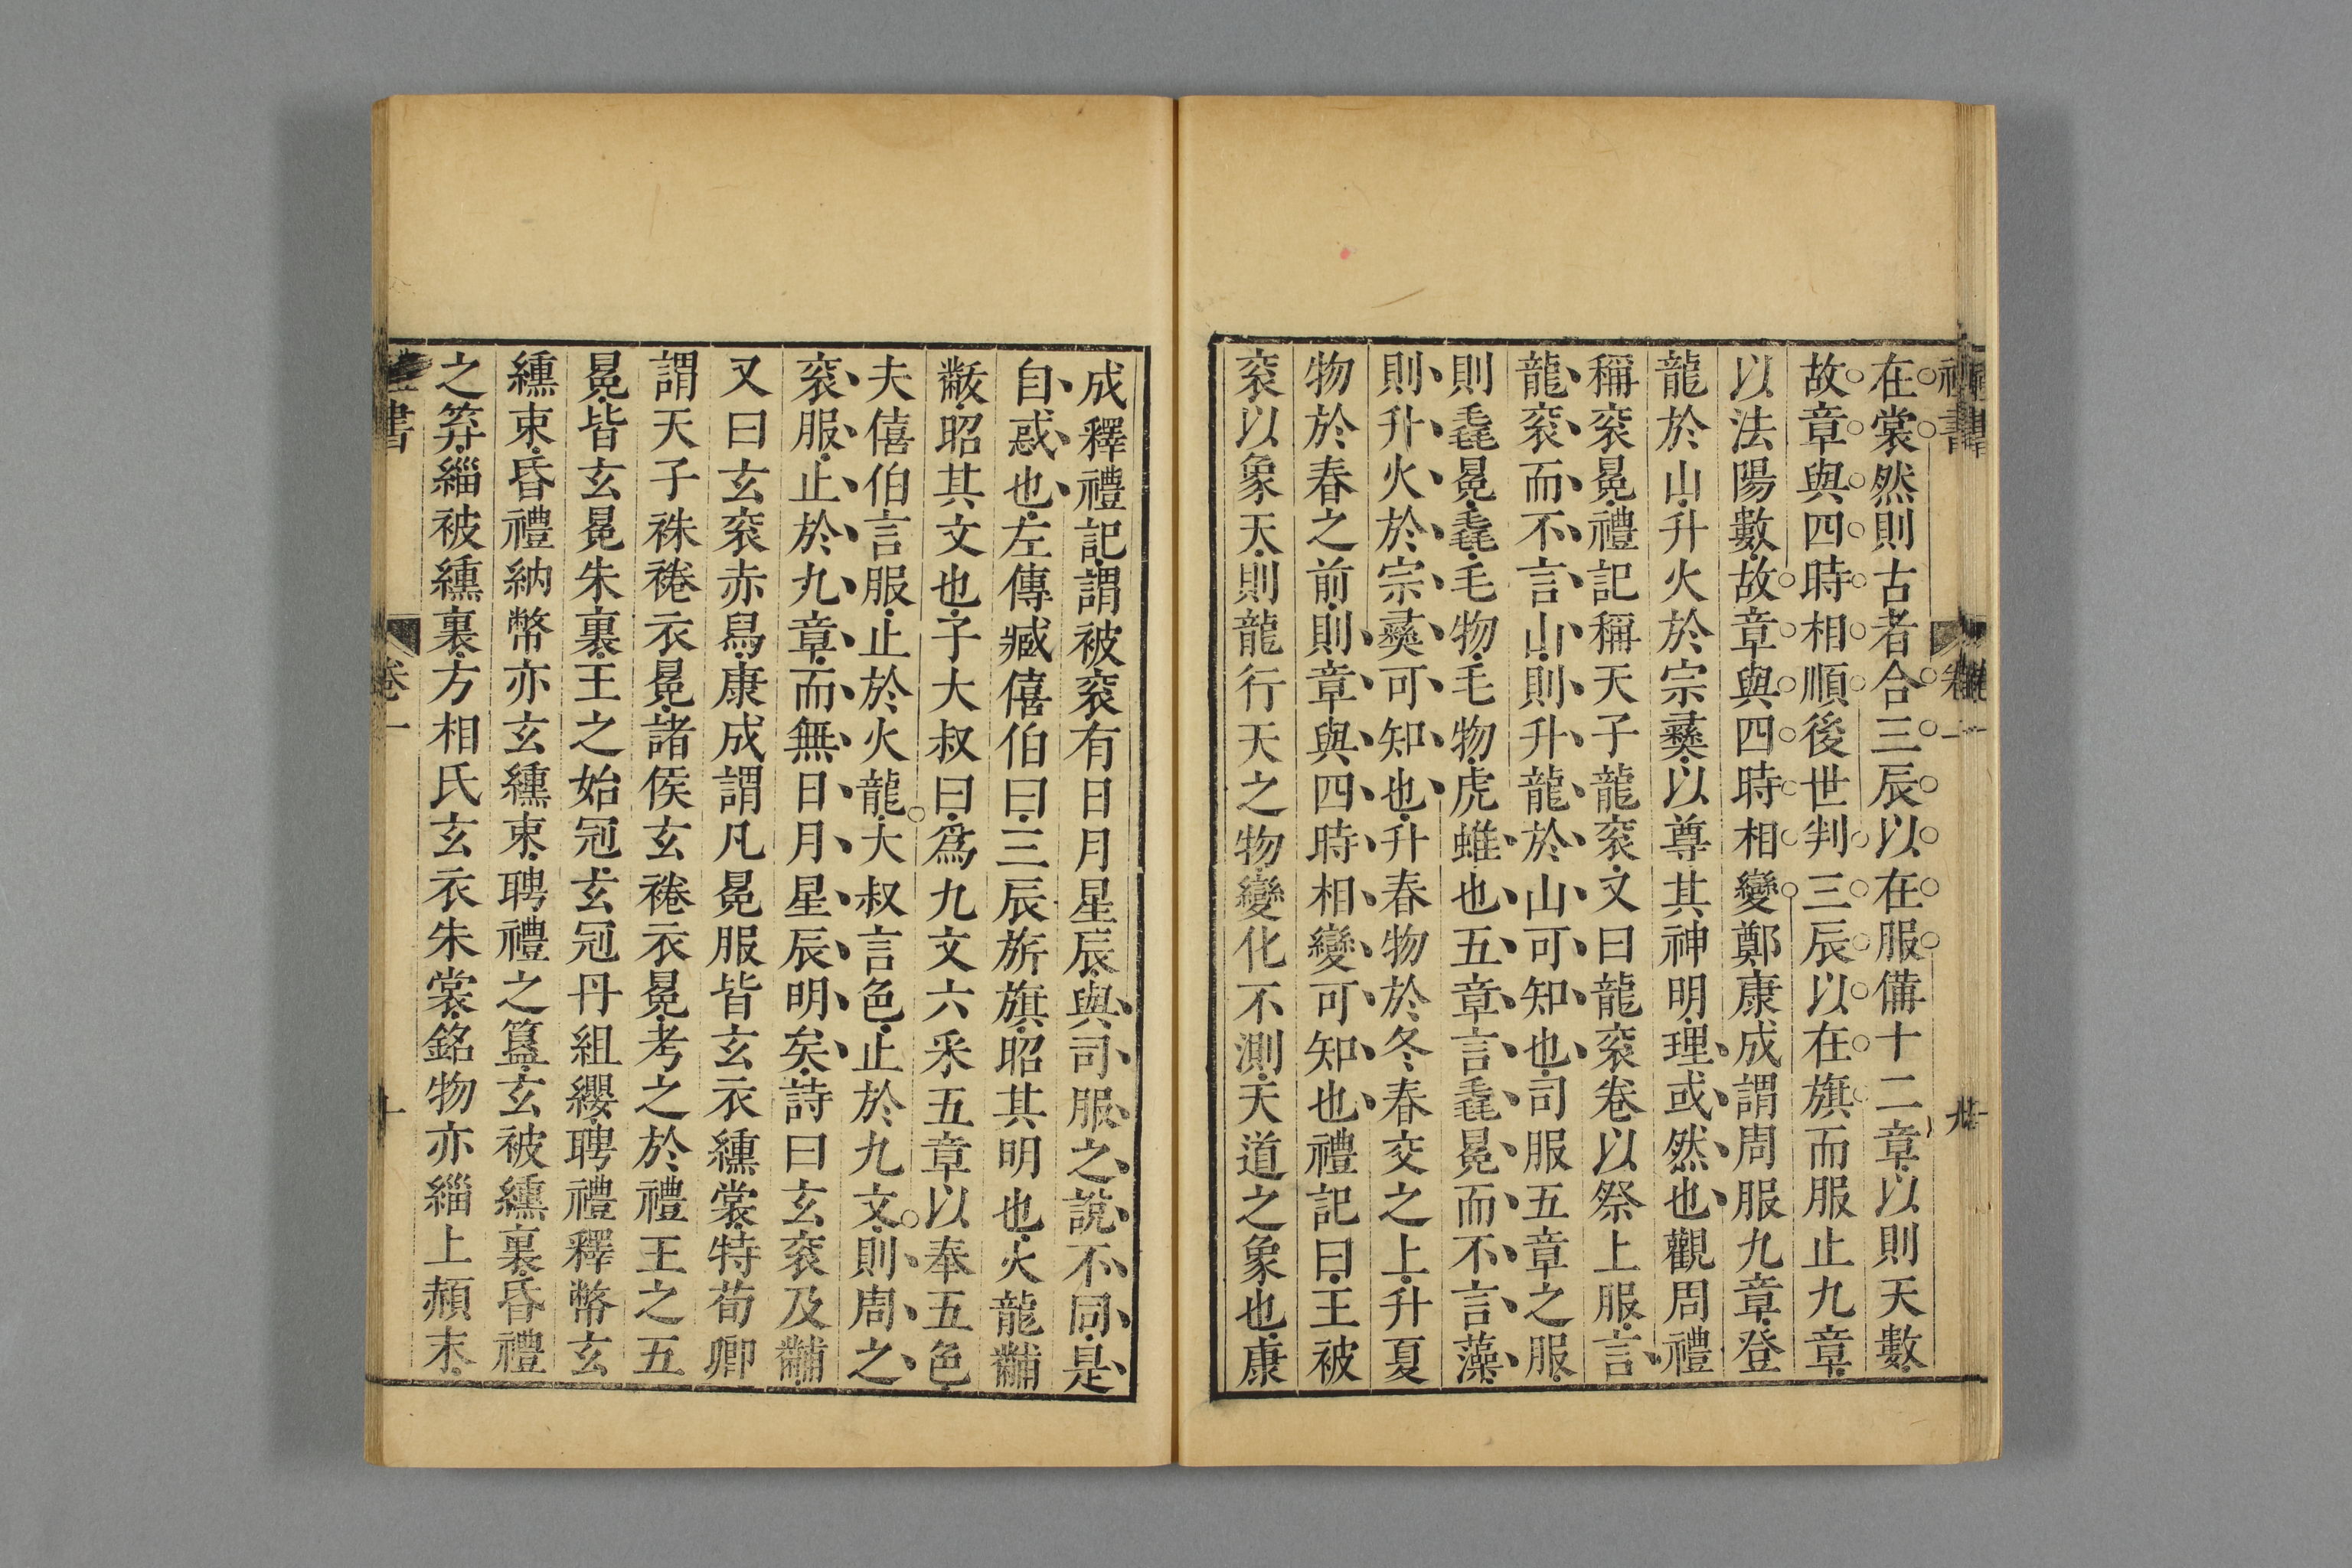 在裳然則古者合三辰以在服備十二章以則天數
故章與四時相順後世判三辰以在旗而服止九章
以法陽數故章與四時相變鄭康成謂周服九章登
龍於山升火於宗彞以尊其神明理或然也觀周禮
稱衮冕禮記稱天子龍衮文曰龍衮卷以祭上服言
龍衮而不言山則升龍於山可知也司服五章之服
則毳冕毳毛物毛物虎蜼也五章言毳冕而不言藻
則升火於宗彞可知也升春物於冬春交之上升夏
物於春之前則章與四時相變可知也禮記曰王被
衮以象天則龍行天之物變化不測天道之象也康
成釋禮記謂被衮有日月星辰與司服之說不同是
自惑也左傳臧僖伯曰三辰旂旗昭其明也火龍黼
黻昭其文也子大叔曰爲九文六采五章以奉五色
夫僖伯言服止於火龍大叔言色止於九文則周之
衮服止於九章而無日月星辰明矣詩曰玄衮及黼
又曰玄衮赤舄康成謂凡冕服皆玄衣纁裳特荀卿
謂天子袾裷衣冕諸侯玄裷衣冕考之於禮王之五
冕皆玄冕朱裏王之始冠玄冠丹組纓聘禮釋幣玄
纁束昏禮納幣亦玄纁束聘禮之簋玄被纁裏昏禮
之笲緇被纁裏方相氏玄衣朱裳銘物亦緇上赬末
書
卷一
十